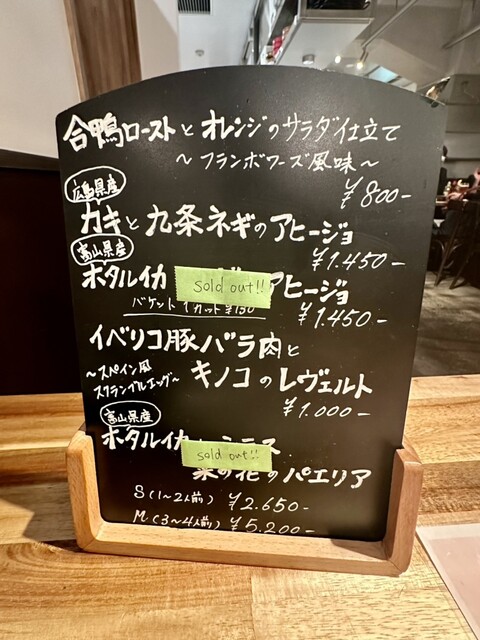 合鴨ローストとオレンジのサラダ仕立て
～フランボワーズ風味～
¥800-
広島県産
カキと九条ネギのアヒージョ
¥1.450-
富山県産
ホタルイカ sold out!! アヒージョ
バケット 1カット ¥150
¥1.450-
イベリコ豚バラ肉と
～スペイン風
スクランブルエッグ～
キノコのレヴェルト
¥1.000-
富山県産
ホタルイカ
sold out!!
菜の花のパエリア
S(1～2人前) ¥2.650-
M(3～4人前) ¥5.200-